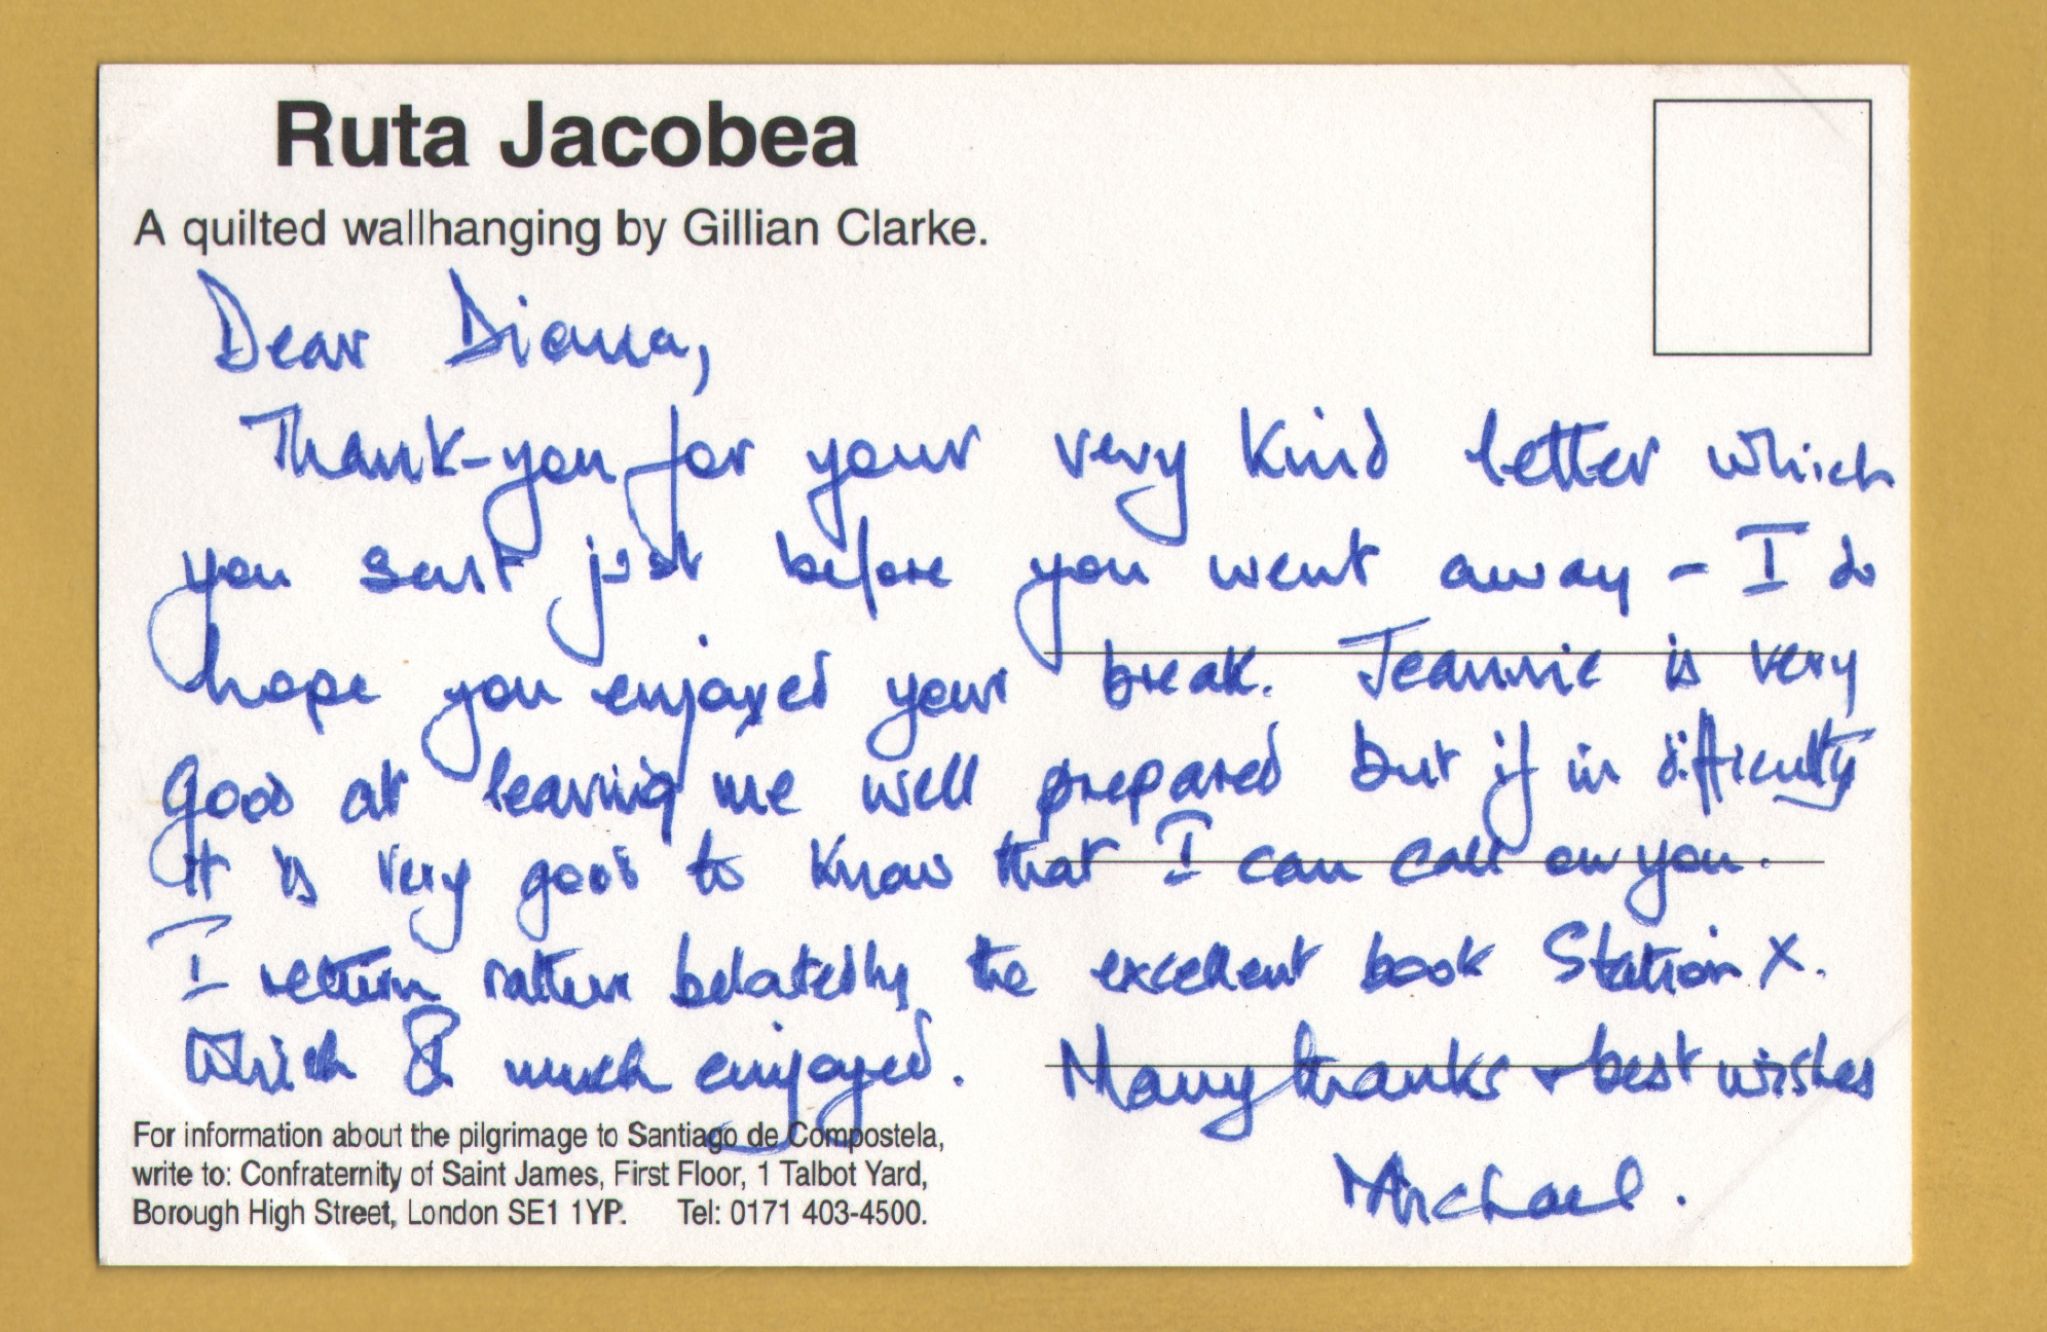 Ruta Jacobea
A quilted wallhanging by Gillian Clarke.
Dear Diana,
Thank-you for your very kind letter which
you sent just before you went away - I do
hope you enjoyed your break. Jeannie is very
good at leaving me well prepared but if in difficulty
it is very good to know that I can call on you.
I return rather belatedly the excellent book Station X.
Which I much enjoyed. Many thanks + best wishes
Michael.
For information about the pilgrimage to Santiago de Compostela,
write to: Confraternity of Saint James, First Floor, 1 Talbot Yard,
Borough High Street, London SE1 1YP. Tel: 0171 403-4500.